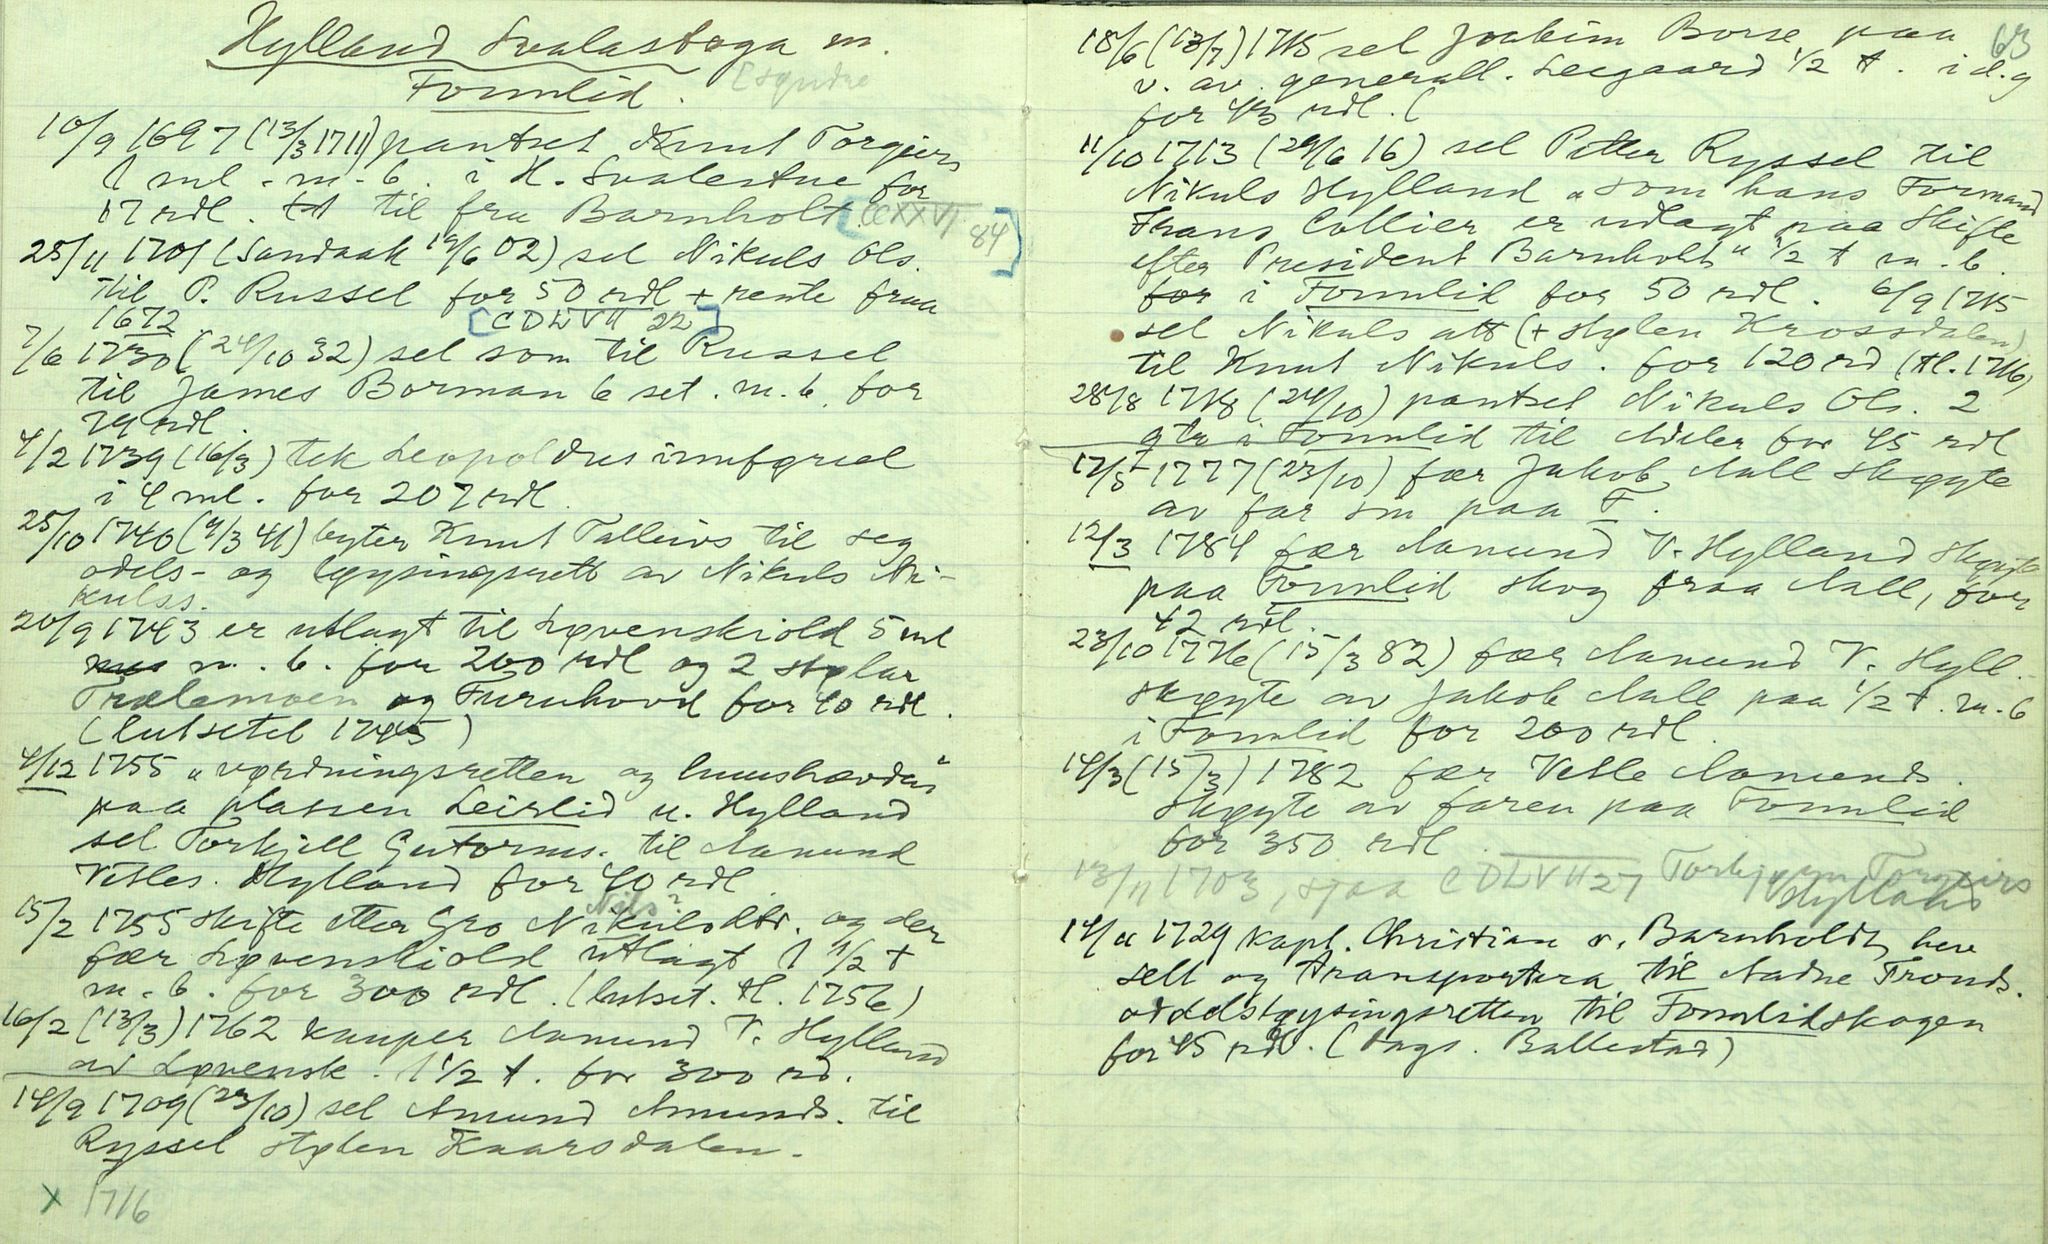 Hylland Svalastoga m.
Fonnlid. (sgndre
10/9 1697 (13/3 1711) pantset Knut Torgjers
1 ml - m - b. i H. Svalestue for
17 rdl. til fra Barnholt [CCXXVI 84]
25/11 1701 (Sandaak 19/6 02) sel Nikuls Ols.
til P. Russel for 50 rdl + rente fraa
1672 [CDLVII 22]
7/6 1730 (24/10 32) sel som til Russel
til James Borman 6 set. m. b. for
79 rdl.
4/2 1739 (16/3) tek Leopoldus innførsel
i 4 ml. for 207 rdl.
25/10 1740 (9/3 41) byter Knut Talleivs til seg
odels- og løysingsrett av Nikuls Ni-
kulss.
20/9 1743 er utlagt til Løvenskiold 5 ml
m. b. for 200 rdl og 2 støylar
Trælemoen og Furuhovd for 40 rdl.
(lutsetel 1745)
4/12 1755 "vørdningsretten og huushævdn"
paa plassen Leirlid u. Hylland
sel Torkjell Gutorms. til Aamund
Vetles. Hylland for 40 rdl.
Nils?
15/2 1755 skifte etter Gro Nikulsdtr. og der
fær Løvenskiold utlagt 1 1/2 t
m. b. for 300 rdl. (lutset. tl. 1756)
16/2 (13/3) 1762 kauper Aamund V. Hylland
av Løvensk. 1 1/2 t. for 300 rd.
14/9 1709 (23/10) sel Amund Amunds. til
Ryssel støylen Kaarsdalen.
x 1716
63
18/6 (13/7) 1715 sel Joakim Borse paa
v. av generall. Leegaard 1/2 t. i d. g
for 43 rdl. (
11/10 1713 (29/6 16) sel Petter Ryssel til
Nikuls Hylland "som hans Formand
Frans Collier er udlagt paa Skifte
efter President Barnholt" 1/2 t m. b.
for i Fonnlid for 50 rdl. 6/9 1715
sel Nikuls att (+ støylen Krossdalen)
til Knut Nikuls. for 120 rd (tl. 1716)
28/8 1718 (24/10) pantset Nikuls Ols. 2
gtr i Fonnlid til Adeler for 45 rdl
17/5 1777 (23/10) fær Jakob Aall skøyte
av far sin paa F.
12/3 1784 fær Aamund V. Hylland skøyte
paa Fonnlid skog fraa Aall, for
42 rdl.
23/10 1776 (15/3 82) fær Aamund V. Hyll.
skøyte av Jakob Aall paa 1/2 t. m. b
i Fonnlid for 200 rdl.
14/3 (15/3) 1782 fær Vetle Aamunds.
skøyte av faren paa Fonnlid
for 350 rdl.
13/11 1703, sjaa CDLVII 27 Torkjønn Torgeirs
Hylland
14/11 1729 kapt. Christian v. Barnholdt, heve
selt og transportera til Aadne Tronds.
oddelsløysingsretten til Fonnlidskogen
for 45 rdl. (Dags. Ballestad)